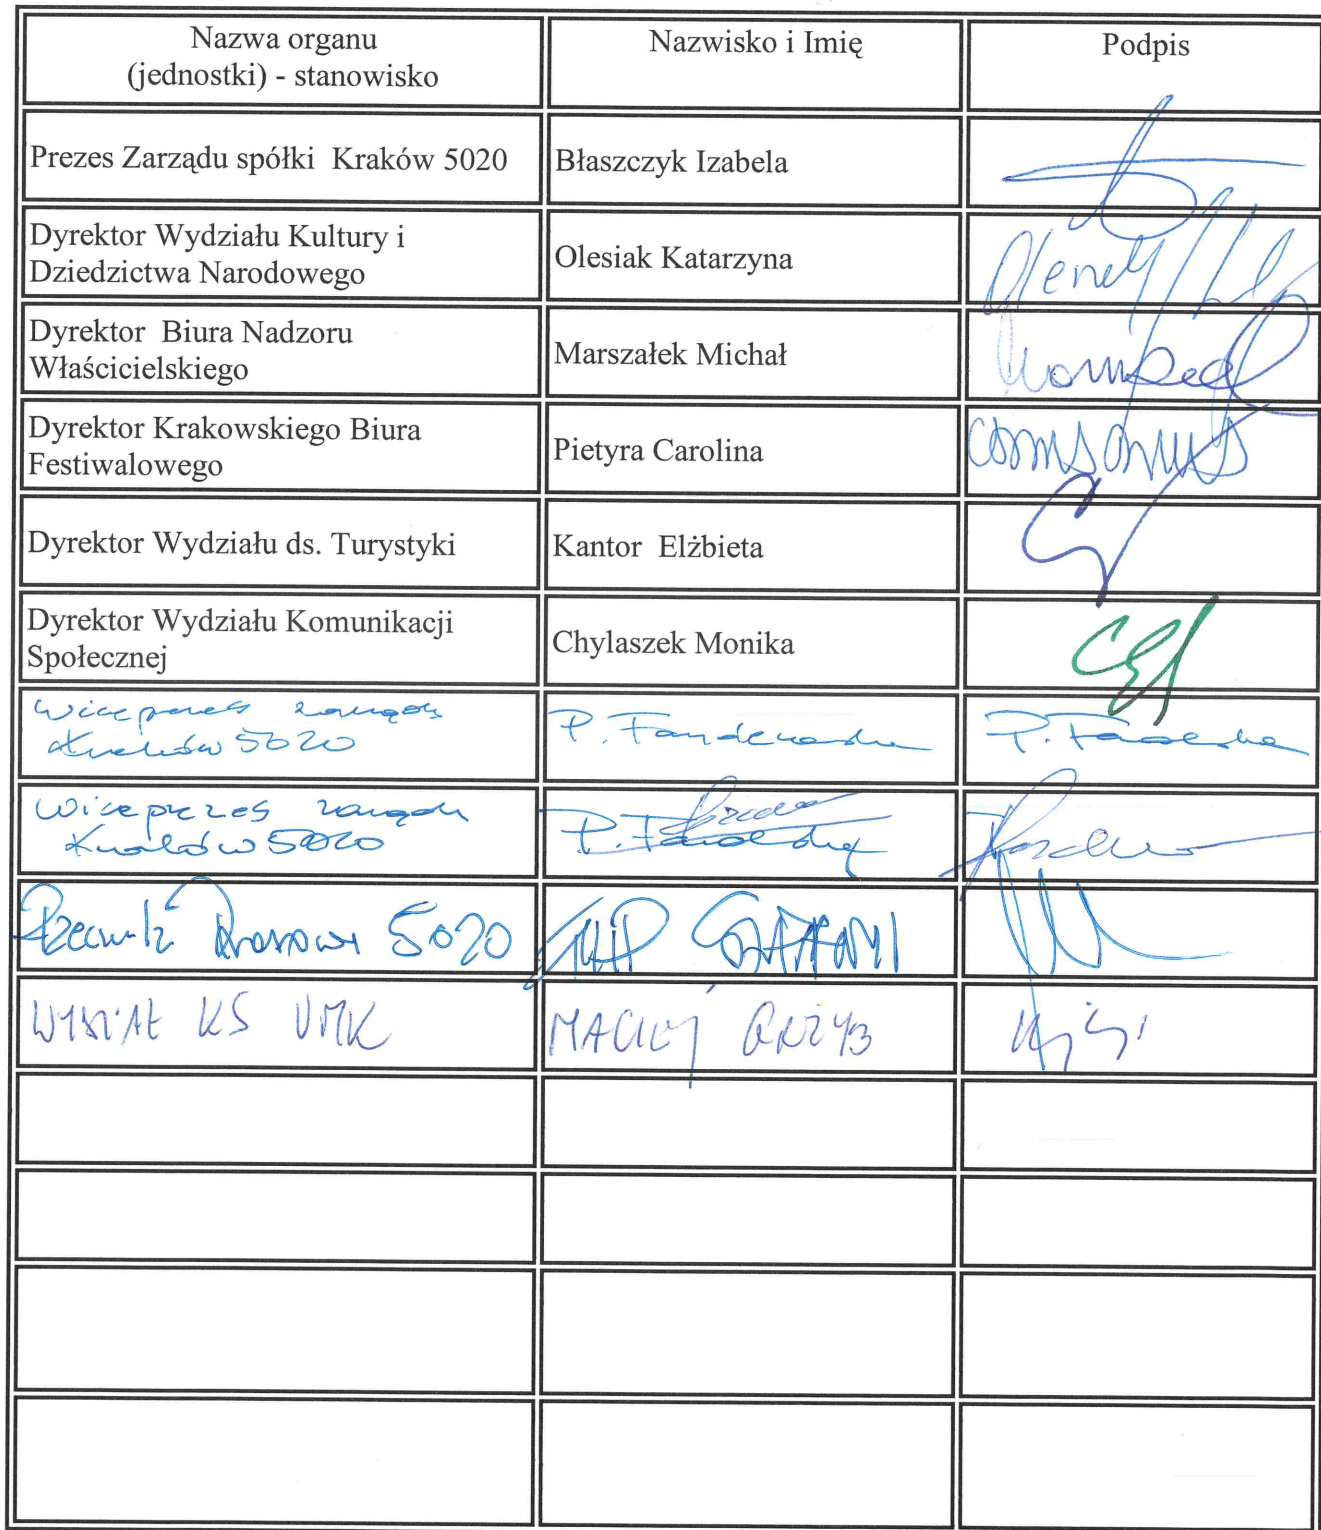 Nazwa organu
(jednostki) - stanowisko
Nazwisko i Imię
Podpis
Prezes Zarządu spółki Kraków 5020
Błaszczyk Izabela
Dyrektor Wydziału Kultury i
Dziedzictwa Narodowego
Olesiak Katarzyna
Dyrektor Biura Nadzoru
Właścicielskiego
Marszałek Michał
Dyrektor Krakowskiego Biura
Festiwalowego
Pietyra Carolina
Dyrektor Wydziału ds. Turystyki
Kantor Elżbieta
Dyrektor Wydziału Komunikacji
Społecznej
Chylaszek Monika
Wiceprezes zarządu
Kraków 5020
P.
P.
Wiceprezes zarządu
Kraków 5020
P.
Rzecznik Prasowy 5020
FILIP SZATANIK
WYDZIAŁ KS UMK
MACIEJ GRZYB